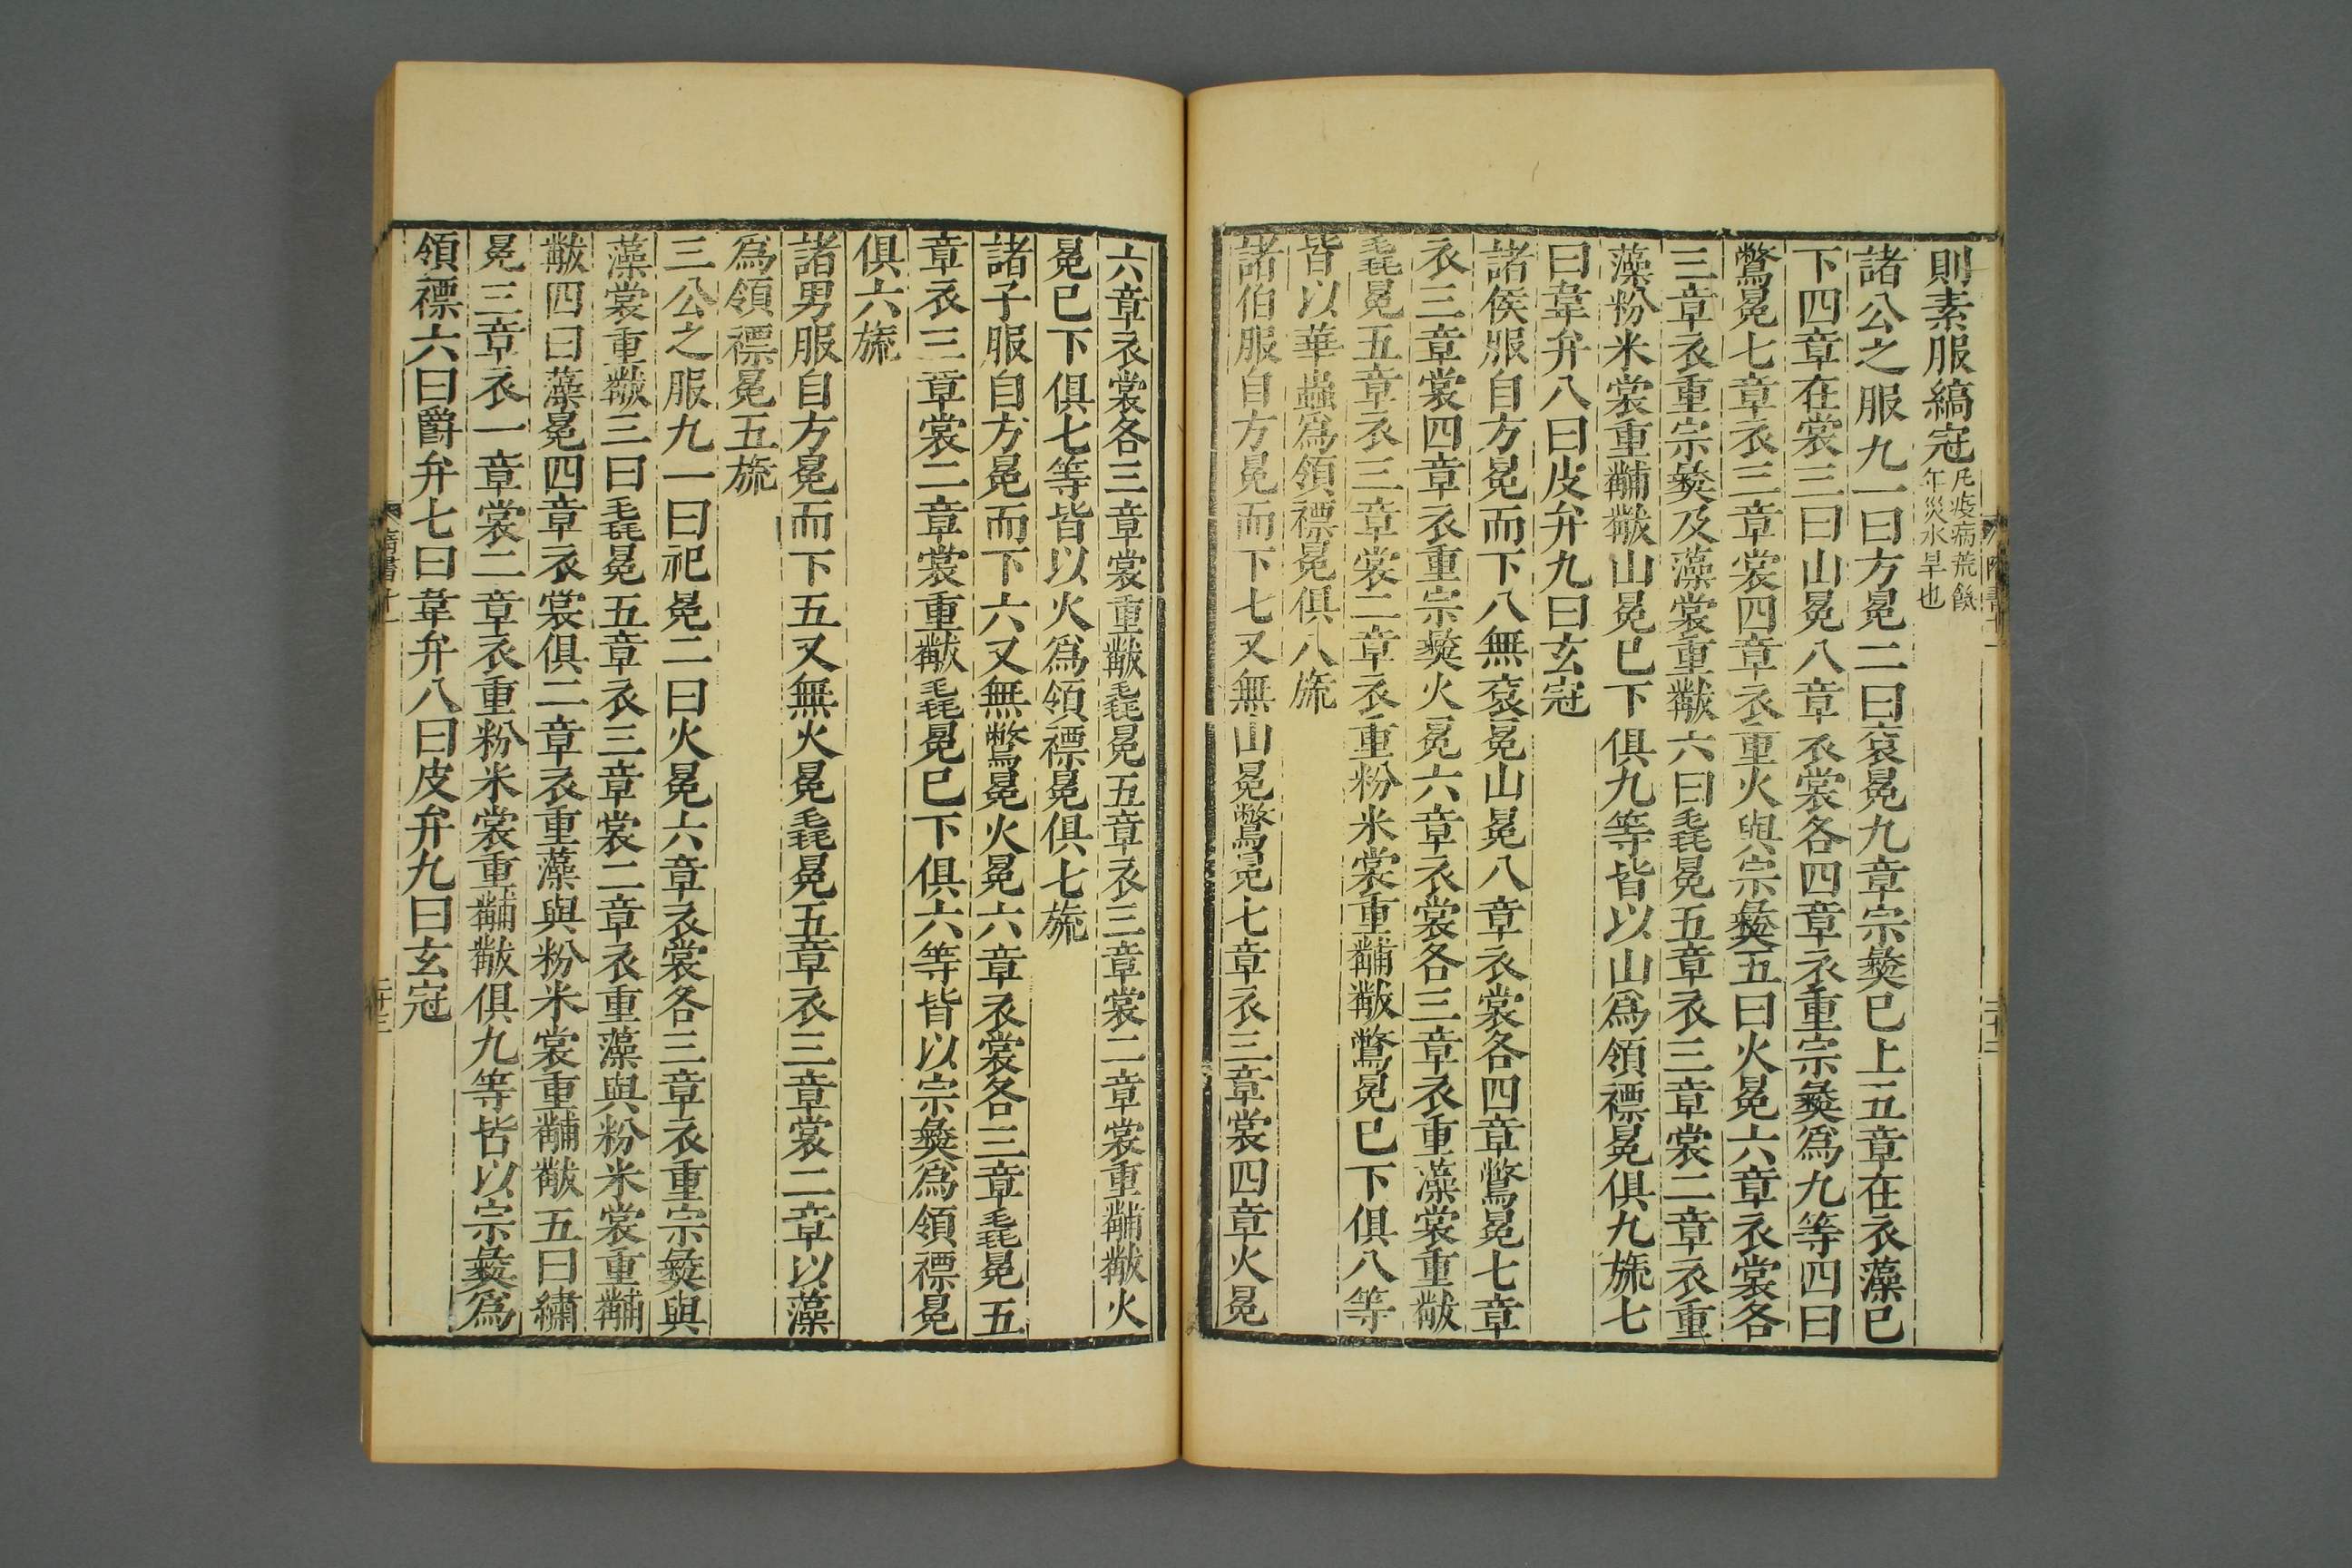 則素服縞冠凡疫病荒飢年災水旱也
諸公之服九一曰方冕二曰袞冕九章宗彜已上五章在衣藻已
下四章在裳三曰山冕八章衣裳各四章衣重宗彜爲九等四曰
鷩冕七章衣三章裳四章衣重火與宗彜五曰火冕六章衣裳各
三章衣重宗彜及藻裳重黻六曰毳冕五章衣三章裳二章衣重
藻粉米裳重黼黻山冕已下俱九等皆以山爲領褾冕俱九旒七
曰韋弁八曰皮弁九曰玄冠
諸侯服自方冕而下八無袞冕山冕八章衣裳各四章鷩冕七章
衣三章裳四章衣重宗彜火冕六章衣裳各三章衣重藻裳重黻
毳冕五章衣三章裳二章衣重粉米裳重黼黻鷩冕已下俱八等
皆以華蟲爲領褾冕俱八旒
諸伯服自方冕而下七又無山冕鷩冕七章衣三章裳四章火冕
六章衣裳各三章裳重黻毳冕五章衣三章裳二章裳重黼黻火
冕已下俱七等皆以火爲領褾冕俱七旒
諸子服自方冕而下六又無鷩冕火冕六章衣裳各三章毳冕五
章衣三章裳二章裳重黻毳冕已下俱六等皆以宗彜爲領褾冕
俱六旒
諸男服自方冕而下五又無火冕毳冕五章衣三章裳二章以藻
爲領褾冕五旒
三公之服九一曰祀冕二曰火冕六章衣裳各三章衣重宗彜與
藻裳重黻三曰毳冕五章衣三章裳二章衣重藻與粉米裳重黼
黻四曰藻冕四章衣裳俱二章衣重藻與粉米裳重黼黻五曰繡
冕三章衣一章裳二章衣重粉米裳重黼黻俱九等皆以宗彜爲
領褾六曰爵弁七曰韋弁八曰皮弁九曰玄冠